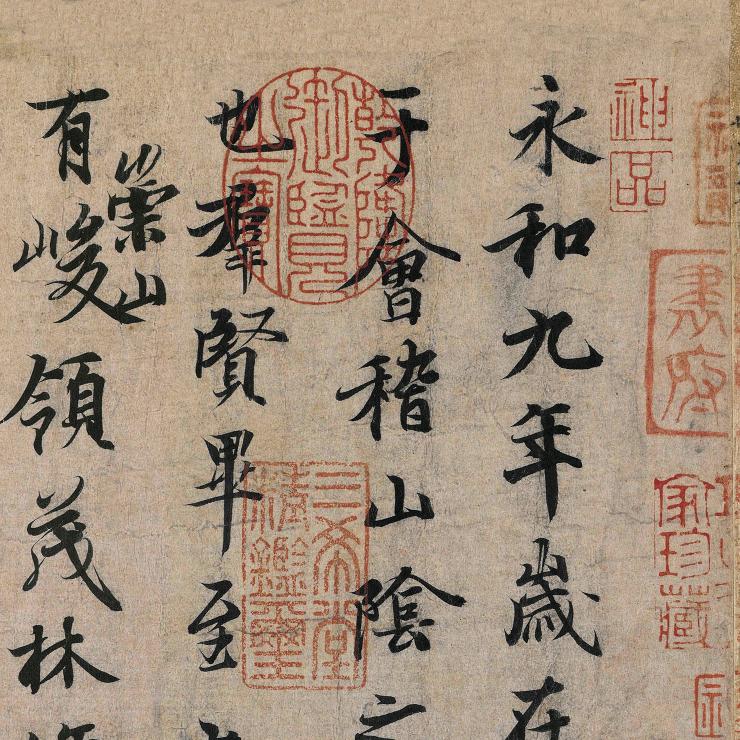 永和九年歲在
于會稽山陰之
也羣賢畢至
崇山
有峻領茂林
神品
書府
家珍藏
乾隆御覽之寶
三希堂精鑑璽